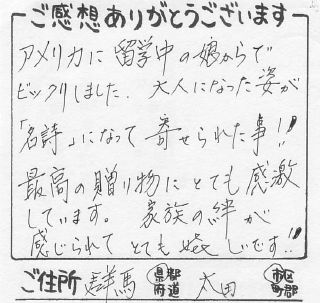 ご感想ありがとうございます
アメリカに留学中の娘からで
ビックリしました。大人になった姿が
「名詩」になって寄せられた事!!
最高の贈り物にとても感激
しています。家族の絆が
感じられてとても嬉しいです!!
ご住所 群馬 都道府県 太田 市区町郡